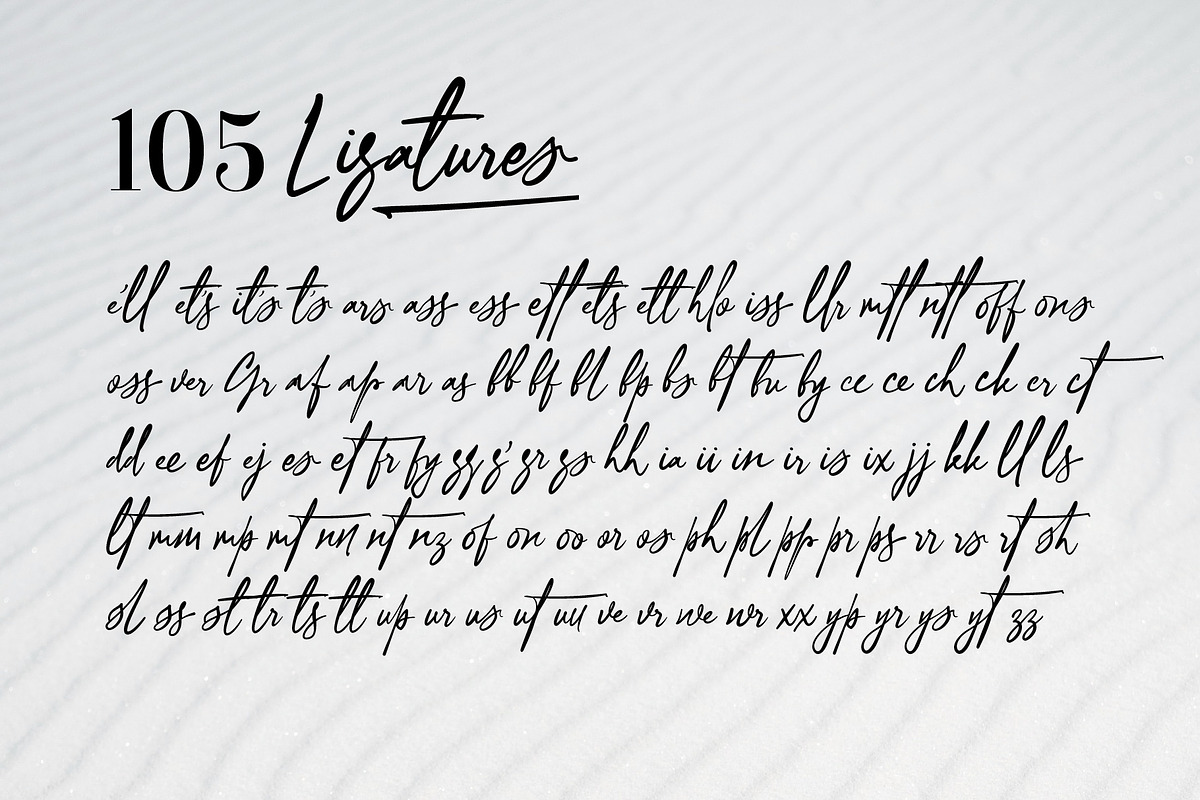 105 Ligatures
e'll et's it's t's ars ass ess ett ets ett hlo iss llr mtt ntt off ons
oss ver Gr af ap ar as bb bf bl bp bs bt bu by cc ce ch ck er ct
dd ee ef ej es et fr fy gg g' gr gs hh ia ii in ir is ix jj kk ll ls
lt mm mp mt nn nt nz of on oo or os ph pl pp pr ps rr rs rt sh
sl ss st tr ts tt up ur us ut uu ve vr we wr xx yp yr ys yt zz